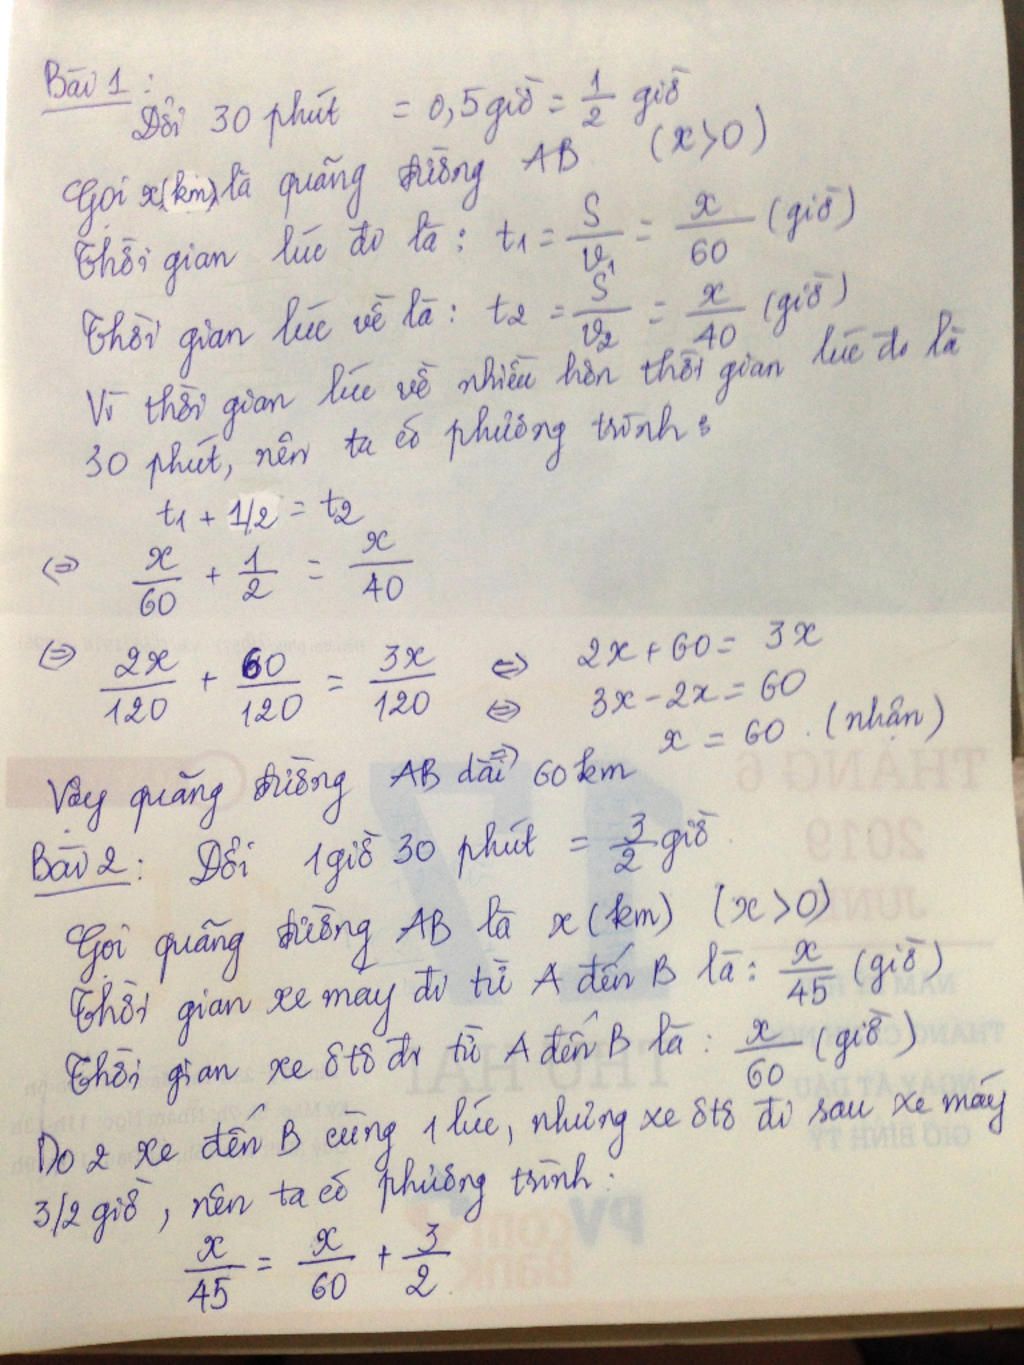 Bài 1 :
Đổi 30 phút = 0,5 giờ = 1/2 giờ
Gọi x(km) là quãng đường AB (x>0)
Thời gian lúc đi là : t1 = S/v1 = x/60 (giờ)
Thời gian lúc về là : t2 = S/v2 = x/40 (giờ)
Vì thời gian lúc về nhiều hơn thời gian lúc đi là
30 phút, nên ta có phương trình :
t1 + 1/2 = t2
⇔ x/60 + 1/2 = x/40
⇔ 2x/120 + 60/120 = 3x/120 ⇔ 2x + 60 = 3x
⇔ 3x - 2x = 60
⇔ x = 60 . (nhận)
Vậy quãng đường AB dài 60 km
Bài 2 : Đổi 1 giờ 30 phút = 3/2 giờ.
Gọi quãng đường AB là x (km) (x>0)
Thời gian xe máy đi từ A đến B là : x/45 (giờ)
Thời gian xe ôtô đi từ A đến B là : x/60 (giờ)
Do 2 xe đến B cùng 1 lúc, nhưng xe ôtô đi sau xe máy
3/2 giờ, nên ta có phương trình :
x/45 = x/60 + 3/2
THÁNG 6
2019
JUNE
17
THỨ HAI
PV
com
Bank